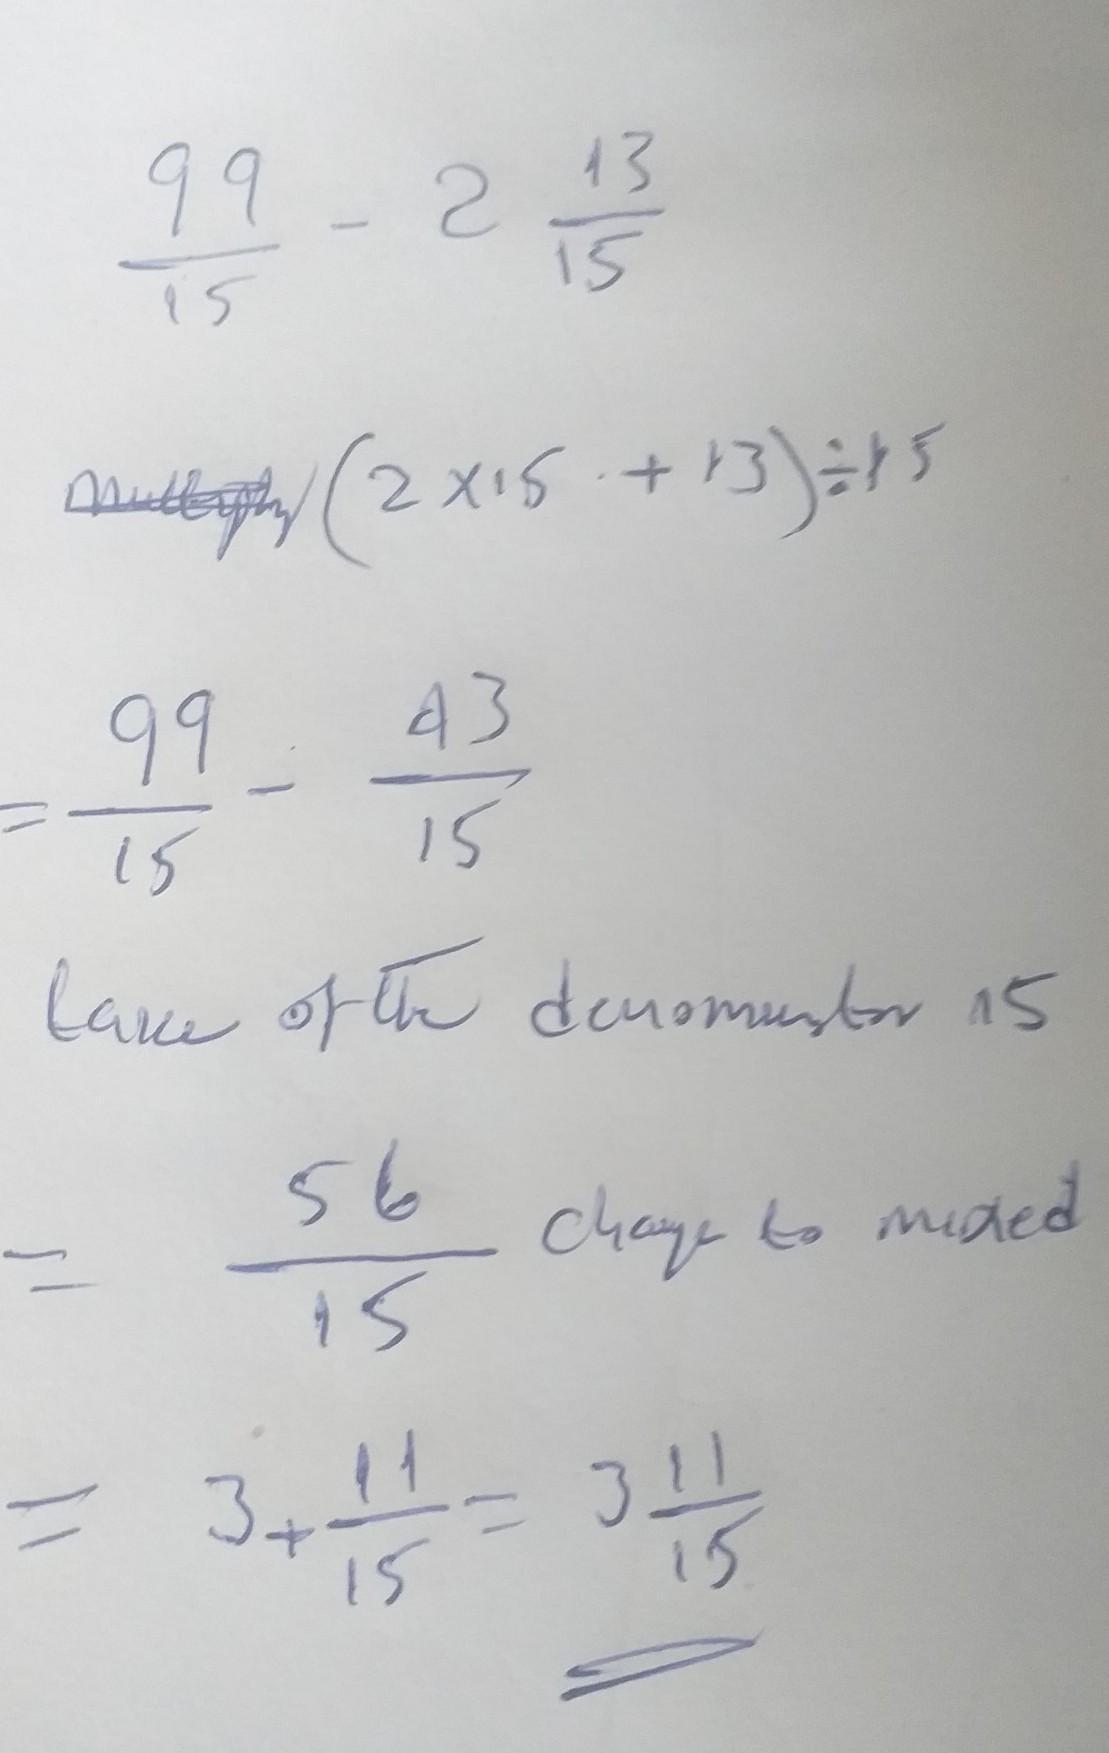 99/15 - 2 13/15
(2 x 15 + 13) ÷ 15
= 99/15 - 43/15
take of the denominator 15
= 56/15 change to mixed
= 3 + 11/15 = 3 11/15